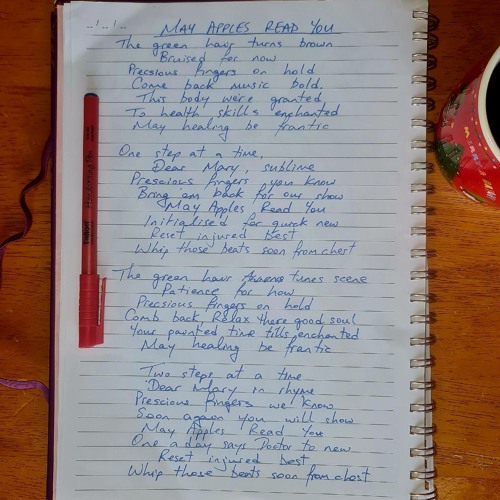 ..!..!..
MAY APPLES READ YOU
The green hair turns brown
Bruised for now
Prescious fingers on hold
Come back music bold.
This body we're granted
To health skills enchanted
May healing be frantic
One step at a time,
Dear Mary, sublime
Prescious fingers you know
Bring am back for our show
May Apples Read You
Initialised for quick new
Reset injured best
Whip those beats soon from chest
The green hair tunes scene
Patience for how
Precsious fingers on hold
Comb back Relax there good soul
Your painted time tills enchanted
May healing be frantic
Two steps at a time
Dear Mary in rhyme
Prescious fingers we know
Soon again you will show
May Apples Read You
One a day says Doctor to new
Reset injured best
Whip those beats soon from chest